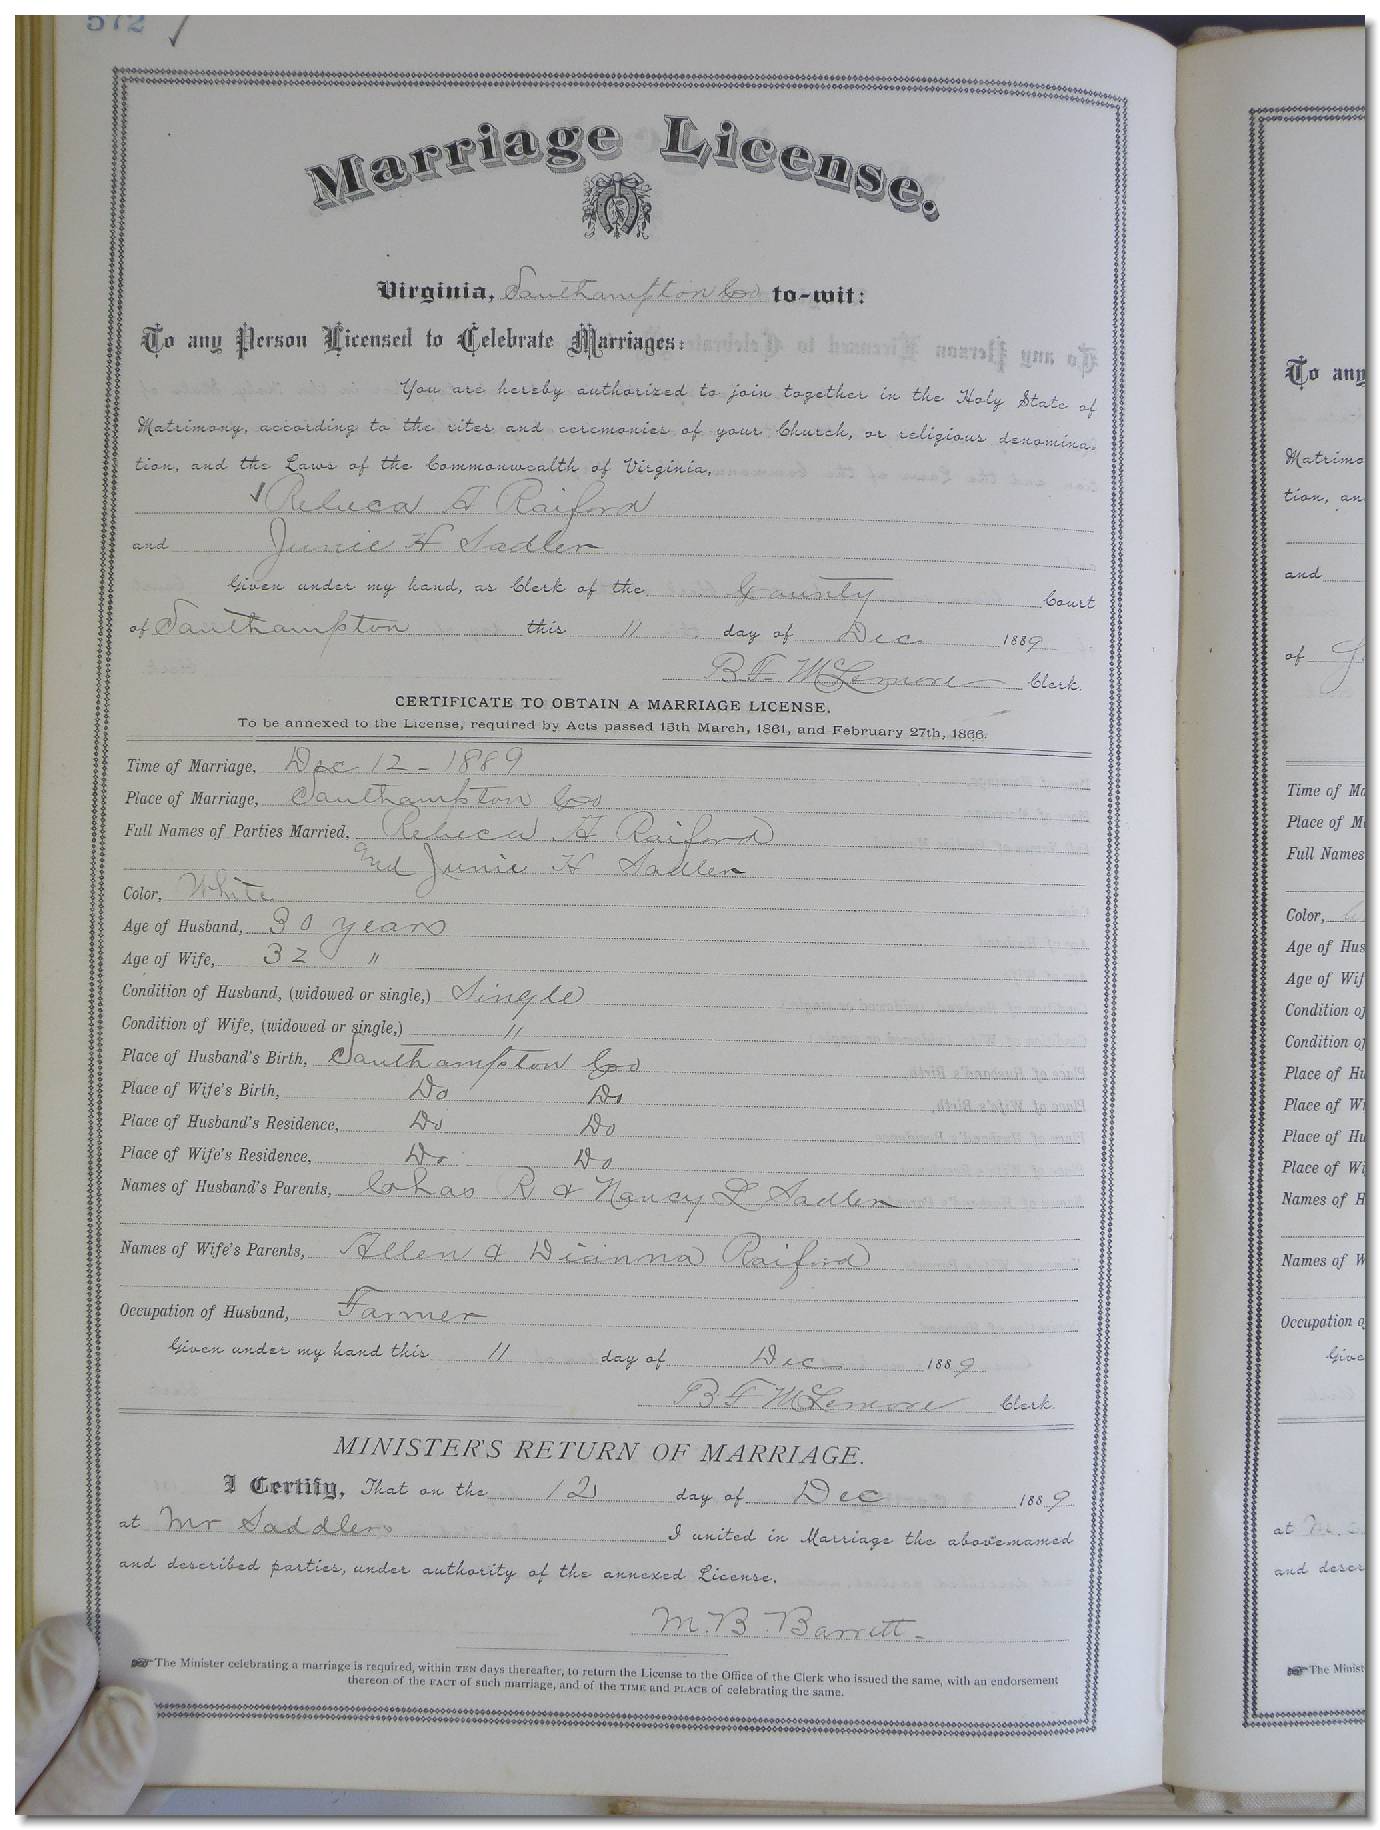 572
Marriage License.
Virginia, Southampton Co to-wit:
To any Person Licensed to Celebrate Marriages:
You are hereby authorized to join together in the Holy State of
Matrimony, according to the rites and ceremonies of your Church, or religious denomina-
tion, and the Laws of the Commonwealth of Virginia,
Rebeca A Raiford
and Junie H Sadler
Given under my hand, as Clerk of the County Court
of Southampton this 11 day of Dec 1889
B. F. McLemore Clerk.
CERTIFICATE TO OBTAIN A MARRIAGE LICENSE,
To be annexed to the License, required by Acts passed 15th March, 1861, and February 27th, 1866.
Time of Marriage, Dec 12 - 1889
Place of Marriage, Southampton Co
Full Names of Parties Married, Rebeca A Raiford
and Junie H Sadler
Color, White
Age of Husband, 30 years
Age of Wife, 32 "
Condition of Husband, (widowed or single,) Single
Condition of Wife, (widowed or single,) "
Place of Husband's Birth, Southampton Co
Place of Wife's Birth, Do Do
Place of Husband's Residence, Do Do
Place of Wife's Residence, Do Do
Names of Husband's Parents, Chas R & Nancy L Sadler
Names of Wife's Parents, Allen & Dianna Raiford
Occupation of Husband, Farmer
Given under my hand this 11 day of Dec 1889
B F McLemore Clerk.
MINISTER'S RETURN OF MARRIAGE.
I Certify, That on the 12 day of Dec 1889
at Mr Saddlers I united in Marriage the above-named
and described parties, under authority of the annexed License.
M. B. Barrett
The Minister celebrating a marriage is required, within TEN days thereafter, to return the License to the Office of the Clerk who issued the same, with an endorsement
thereon of the FACT of such marriage, and of the TIME and PLACE of celebrating the same.
To any
Matrimo
tion, an
and
of
Time of Ma
Place of M
Full Names
Color,
Age of Hus
Age of Wif
Condition of
Condition of
Place of Hu
Place of Wi
Place of Hu
Place of Wi
Names of H
Names of W
Occupation o
Give
at
and descr
The Minist